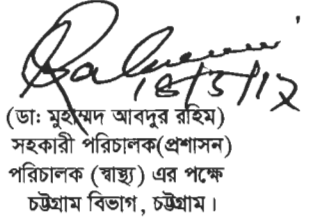 18/5/17
(ডাঃ মুহাম্মদ আবদুর রহিম)
সহকারী পরিচালক(প্রশাসন)
পরিচালক (স্বাস্থ্য) এর পক্ষে
চট্টগ্রাম বিভাগ, চট্টগ্রাম।